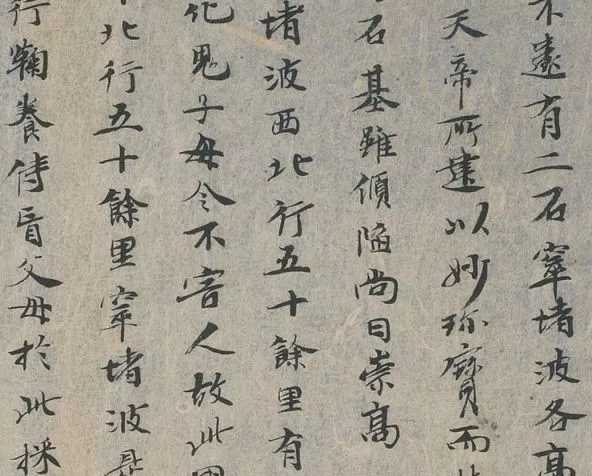 不遠有二石窣堵波各高
天帝所建以妙珎寶而
石基雖傾陷尚曰崇高
堵波西北行五十餘里有
化鬼子母令不害人故此國
北行五十餘里窣堵波是
行鞠養侍盲父母於此採